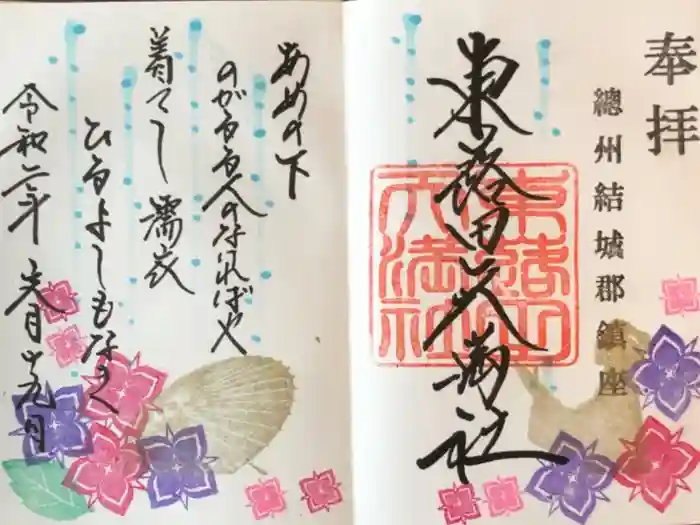 奉拝
總州結城郡鎮座
東蕗田天満社
東蕗田
天満社
あめの下
のがるる人のなければや
着てし濡衣
ひるよしもなき
令和二年 六月 十九日